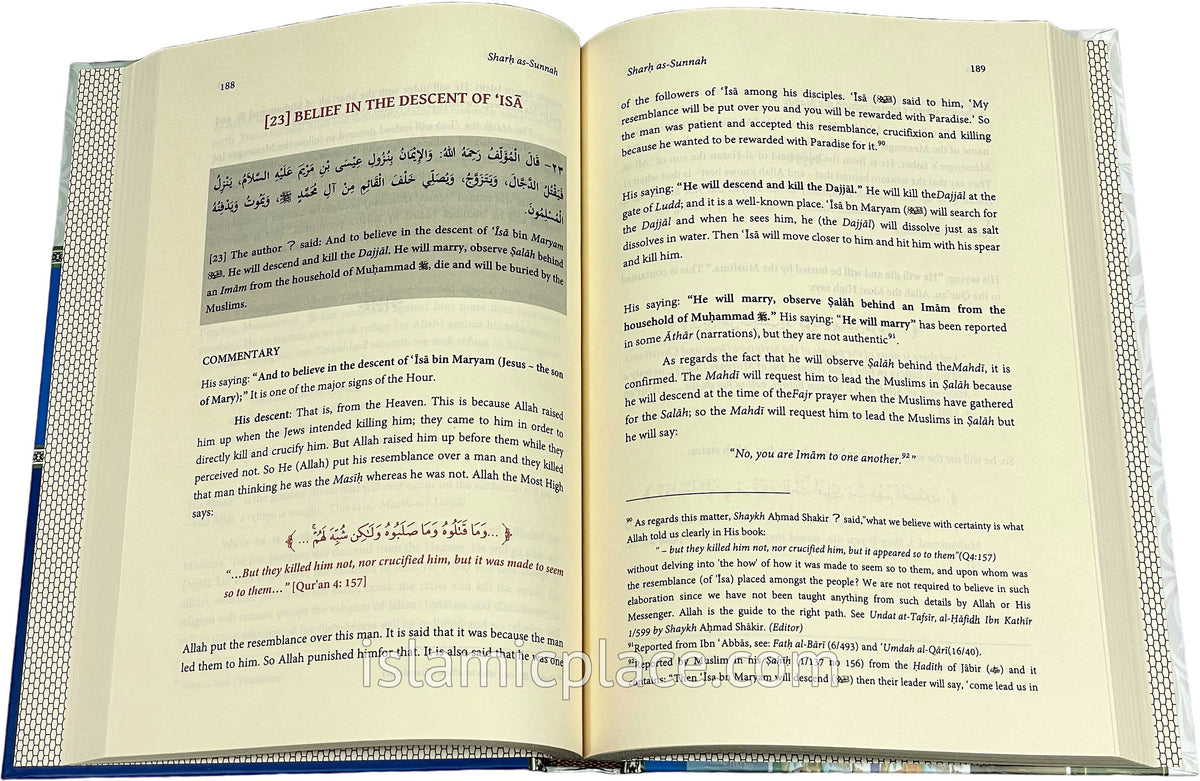 188
Sharḥ as-Sunnah
[23] BELIEF IN THE DESCENT OF ‘ISĀ
٢٣– قَالَ الْمُؤَلِّفُ رَحِمَهُ اللهُ: وَالإِيْمَانُ بِنُزُولِ عِيْسَى بْنِ مَرْيَمَ عَلَيْهِ السَّلَامُ، يَنْزِلُ
فَيَقْتُلُ الدَّجَّالَ، وَيَتَزَوَّجُ، وَيُصَلِّي خَلْفَ الْقَائِمِ مِنْ آلِ مُحَمَّدٍ ﷺ، وَيَمُوتُ وَيَدْفِنُهُ
الْمُسْلِمُونَ.
[23] The author ? said: And to believe in the descent of ‘Isā bin Maryam
. He will descend and kill the Dajjal. He will marry, observe Ṣalāh behind
an Imām from the household of Muḥammad ﷺ, die and will be buried by the
Muslims.
COMMENTARY
His saying: “And to believe in the descent of ‘Isā bin Maryam (Jesus – the son
of Mary);” It is one of the major signs of the Hour.
His descent: That is, from the Heaven. This is because Allah raised
him up when the Jews intended killing him; they came to him in order to
directly kill and crucify him. But Allah raised him up before them while they
perceived not. So He (Allah) put his resemblance over a man and they killed
that man thinking he was the Masiḥ whereas he was not. Allah the Most High
says:
﴿ ...وَمَا قَتَلُوهُ وَمَا صَلَبُوهُ وَلَـٰكِن شُبِّهَ لَهُمْ ۚ ... ﴾
“...But they killed him not, nor crucified him, but it was made to seem
so to them...” [Qur'an 4: 157]
Allah put the resemblance over this man. It is said that it was because the man
led them to him. So Allah punished himfor that. It is also said that he was one
Sharḥ as-Sunnah
189
of the followers of ‘Isā among his disciples. ‘Isā () said to him, ‘My
resemblance will be put over you and you will be rewarded with Paradise.’ So
the man was patient and accepted this resemblance, crucifixion and killing
because he wanted to be rewarded with Paradise for it.⁹⁰
His saying: “He will descend and kill the Dajjāl.” He will kill theDajjāl at the
gate of Ludd; and it is a well-known place. ‘Isā bn Maryam () will search for
the Dajjāl and when he sees him, he (the Dajjāl) will dissolve just as salt
dissolves in water. Then ‘Isā will move closer to him and hit him with his spear
and kill him.
His saying: “He will marry, observe Ṣalāh behind an Imām from the
household of Muḥammad ﷺ.” His saying: “He will marry” has been reported
in some Āthār (narrations), but they are not authentic⁹¹.
As regards the fact that he will observe Ṣalāh behind theMahdī, it is
confirmed. The Mahdī will request him to lead the Muslims in Ṣalāh because
he will descend at the time of theFajr prayer when the Muslims have gathered
for the Salāh; so the Mahdī will request him to lead the Muslims in Ṣalāh but
he will say:
“No, you are Imām to one another.⁹²”
⁹⁰ As regards this matter, Shaykh Aḥmad Shakir ? said,"what we believe with certainty is what
Allah told us clearly in His book:
" – but they killed him not, nor crucified him, but it appeared so to them"(Q4:157)
without delving into 'the how' of how it was made to seem so to them, and upon whom was
the resemblance (of 'Isa) placed amongst the people? We are not required to believe in such
elaboration since we have not been taught anything from such details by Allah or His
Messenger. Allah is the guide to the right path. See Undat at-Tafsir, al-Ḥāfidh Ibn Kathīr
1/599 by Shaykh Aḥmad Shākir. (Editor)
Reported from Ibn ‘Abbās, see: Fatḥ al-Bārī (6/493) and ‘Umdah al-Qārī(16/40).
Reported by Muslim in his Ṣaḥīḥ (1/137 no 156) from the Ḥadīth of Jābir () and it
contains: “Then ‘Īsa bn Maryam will descend () then their leader will say, ‘come lead us in
islamicplace.com